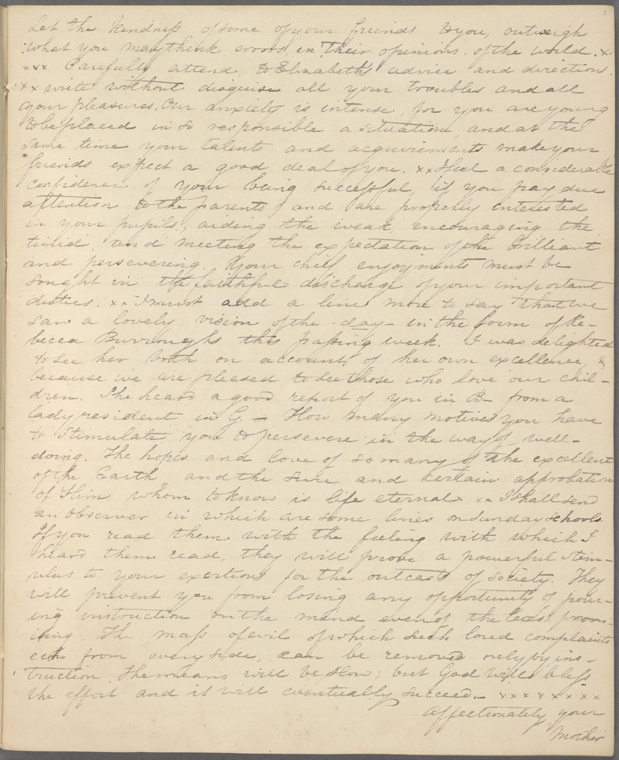 Let the kindness of some of your friends to you, outweigh
what you may think errors in their opinions of the world. x
xxx Carefully attend to Elizabeth's advice and direction.
xx write without disguise all your troubles and all
your pleasures. Our anxiety is intense, for you are young
to be placed in so responsible a situation, and at the
same time your talents and acquirements make your
friends expect a good deal of you. xx I feel a considerable
confidence of your being successful, if you pay due
attention to the parents, and are properly interested
in your pupils, aiding the weak, encouraging the
timid, and meeting the expectation of the brilliant
and persevering. Your chief enjoyments must be
sought in the faithful discharge of your important
duties. xx I must add a line more to say that we
saw a lovely vision of the day in the form of Re-
becca Burroughs this passing week. I was delighted
to see her both on account of her own excellence, &
because we are pleased to see those who love our chil-
dren. She heard a good report of you in B— from a
lady resident in G. — How many motives you have
to stimulate you to persevere in the way of well-
doing. The hopes and love of so many of the excellent
of the Earth and the sure and certain approbation
of Him whom to know is life eternal. xx I shall send
an observer in which are some lines on Sunday schools.
If you read them with the feeling with which I
heard them read, they will prove a powerful stim-
ulus to your exertions for the outcasts of society. They
will prevent you from losing any opportunity of pour-
ing instruction on the mind even of the least prom-
ising. The mass of evil of which such loud complaints
from every side, can be removed only by ins-
truction. The means will be slow; but God will bless
the effort and it will eventually succeed. — xxxxxxxx
Affectionately, your
Mother